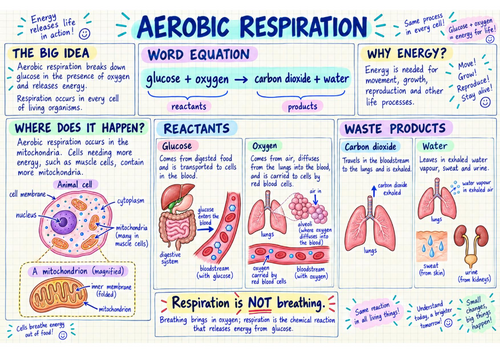 Energy
releases life
in action!
AEROBIC RESPIRATION
Same process
in every cell!
Glucose + oxygen
= energy for life!
THE BIG IDEA
Aerobic respiration breaks down
glucose in the presence of oxygen
and releases energy.
Respiration occurs in every cell
of living organisms.
WORD EQUATION
glucose + oxygen → carbon dioxide + water
reactants
products
WHY ENERGY?
Energy is needed for
movement, growth,
reproduction and other
life processes.
Move!
Grow!
Reproduce!
Stay alive!
WHERE DOES IT HAPPEN?
Aerobic respiration occurs in the
mitochondria. Cells needing more
energy, such as muscle cells, contain
more mitochondria.
Animal cell
cell membrane
cytoplasm
nucleus
mitochondria
(many in
muscle cells)
A mitochondrion (magnified)
inner membrane
(folded)
mitochondrion
Cells breathe energy
out of food!
REACTANTS
Glucose
Comes from digested food
and is transported to cells
in the blood.
glucose
enters the
blood
digestive
system
bloodstream
(with glucose)
Oxygen
Comes from air, diffuses
from the lungs into the blood,
and is carried to cells by
red blood cells.
air in
lungs
alveoli
(where oxygen
diffuses into
the blood)
oxygen
carried by
red blood cells
bloodstream
(with oxygen)
WASTE PRODUCTS
Carbon dioxide
Travels in the bloodstream
to the lungs and is exhaled.
carbon dioxide
exhaled
lungs
Water
Leaves in exhaled water
vapour, sweat and urine.
water vapour
in exhaled air
lungs
sweat
(from skin)
urine
(from kidneys)
Respiration is NOT breathing.
Breathing brings in oxygen; respiration is the chemical reaction
that releases energy from glucose.
Same reaction
in all living things!
Understand
today, a brighter
tomorrow!
Small
changes,
big things
happen!